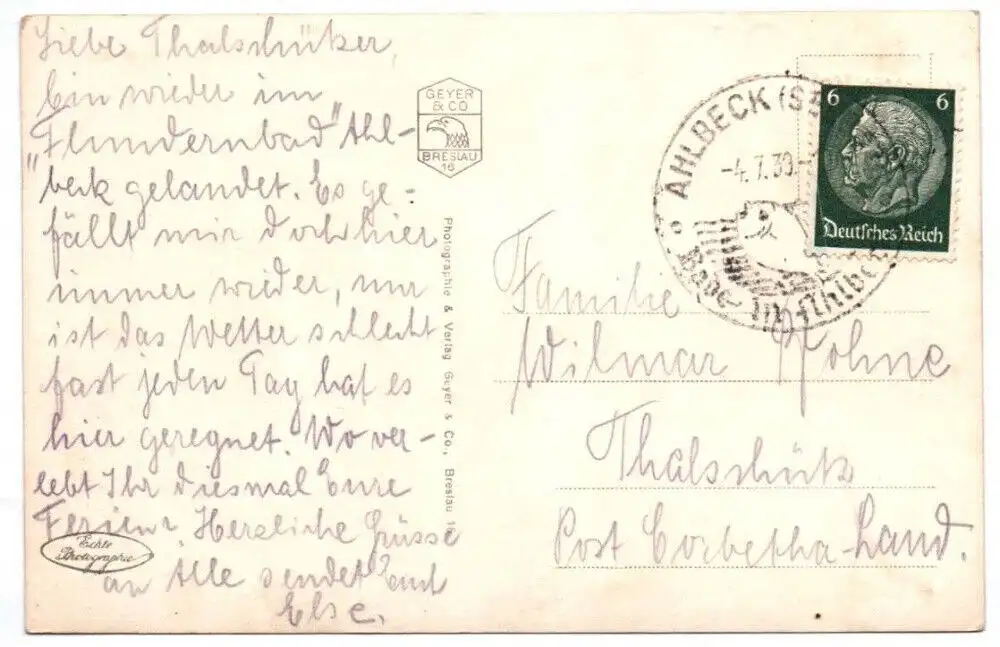 Liebe Thalschützer,
Bin wieder im
"Flundernbad" Ahl-
beck gelandet. Es ge-
fällt mir doch hier
immer wieder, nur
ist das Wetter schlecht
fast jeden Tag hat es
hier geregnet. Wo ver-
lebt Ihr diesmal Eure
Ferien? Herzliche Grüsse
an Alle sendet Euch
Else.
Echte
Photographie
GEYER
& CO
BRESLAU
16
Photographie & Verlag Geyer & Co., Breslau 16
AHLBECK (S
-4.7.39.-
Bade in Ahlbe
6 6
Deutsches Reich
Familie
Wilmar Kohne
Thalschütz
Post Corbetha-Land.